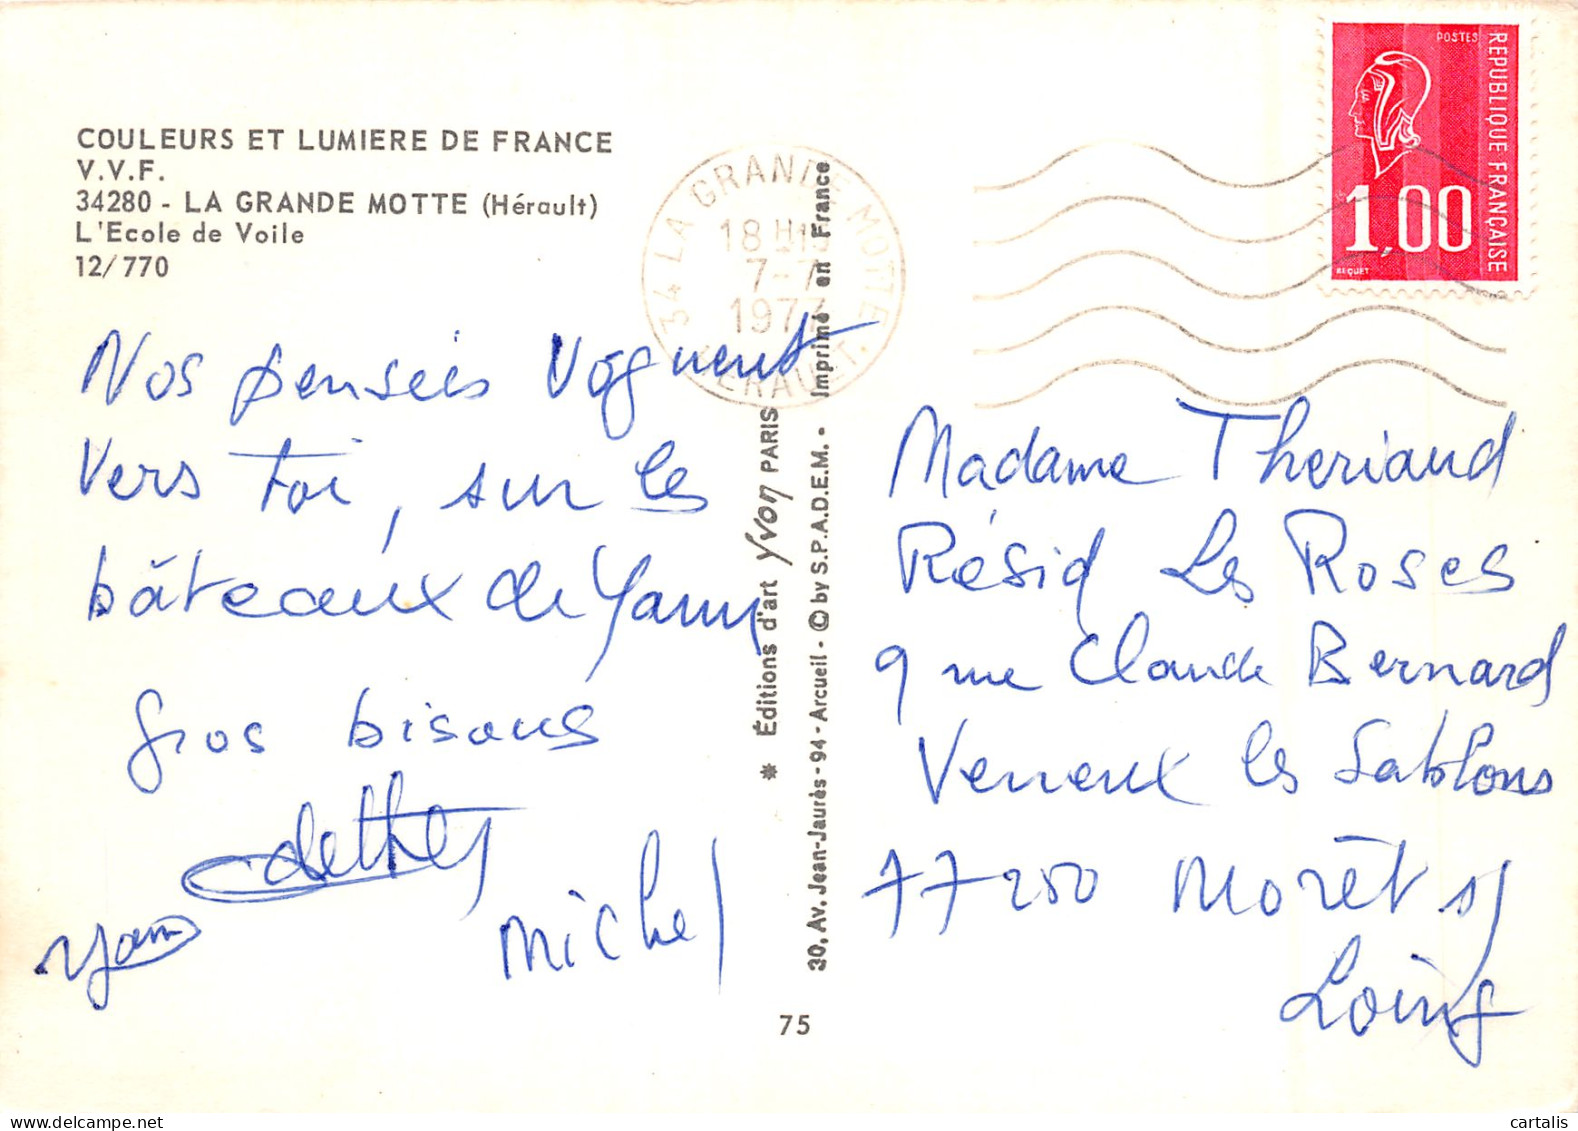 COULEURS ET LUMIERE DE FRANCE
V.V.F.
34280 - LA GRANDE MOTTE (Hérault)
L'Ecole de Voile
12/770
34 LA GRANDE MOTTE
18 H
7-7
1977
HERAULT.
POSTES
REPUBLIQUE FRANÇAISE
1,00
BEQUET
Nos pensées voguent
vers toi, sur les
bâteaux de Yann
Gros bisous
Yann
Michel
* Éditions d'art Yvon PARIS
30, Av. Jean-Jaurès - 94 - Arcueil - © by S.P.A.D.E.M. - Imprimé en France
75
Madame Theriaud
Résid Les Roses
9 rue Claude Bernard
Veneux les Sablons
77250 Morêt s/
Loing
cartalis